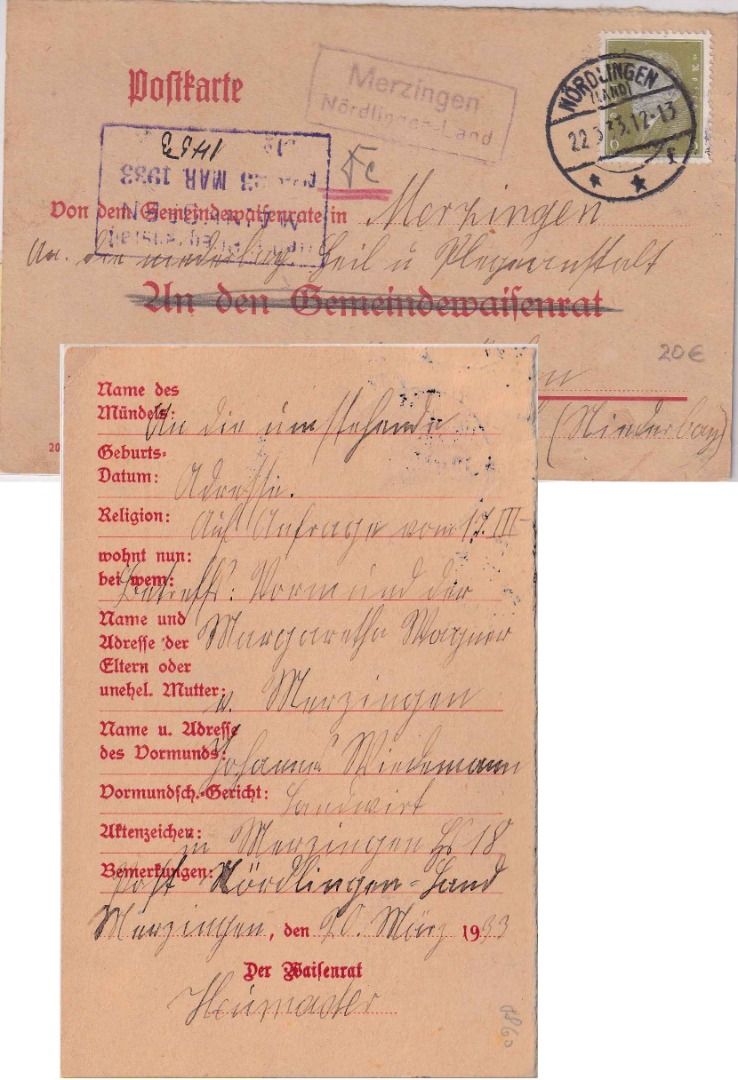 Postkarte
Merzingen
Nördlingen-Land
NÖRDLINGEN
(LAND)
22.3.33.12-13
f
23. MAR. 1933
Von dem Gemeindewaisenrate in Merzingen
An die niederbay. Heil u Pflegeanstalt
An den Gemeindewaisenrat
20€
(Niederbay)
20
Name des
Mündels: An die umstehende
Geburts-
Datum: Adresse.
Religion: Auf Anfrage vom 17. III
wohnt nun:
bei wem: Betreffs: Vormund der
Name und
Adresse der Margaretha Wagner
Eltern oder
unehel. Mutter: v. Merzingen
Name u. Adresse
des Vormunds: Johann Wiedemann
Vormundsch.-Gericht: Landwirt
Aktenzeichen: in Merzingen Hs 18
Bemerkungen: Post Nördlingen-Land
Merzingen, den 20. März 1933
Der Waisenrat